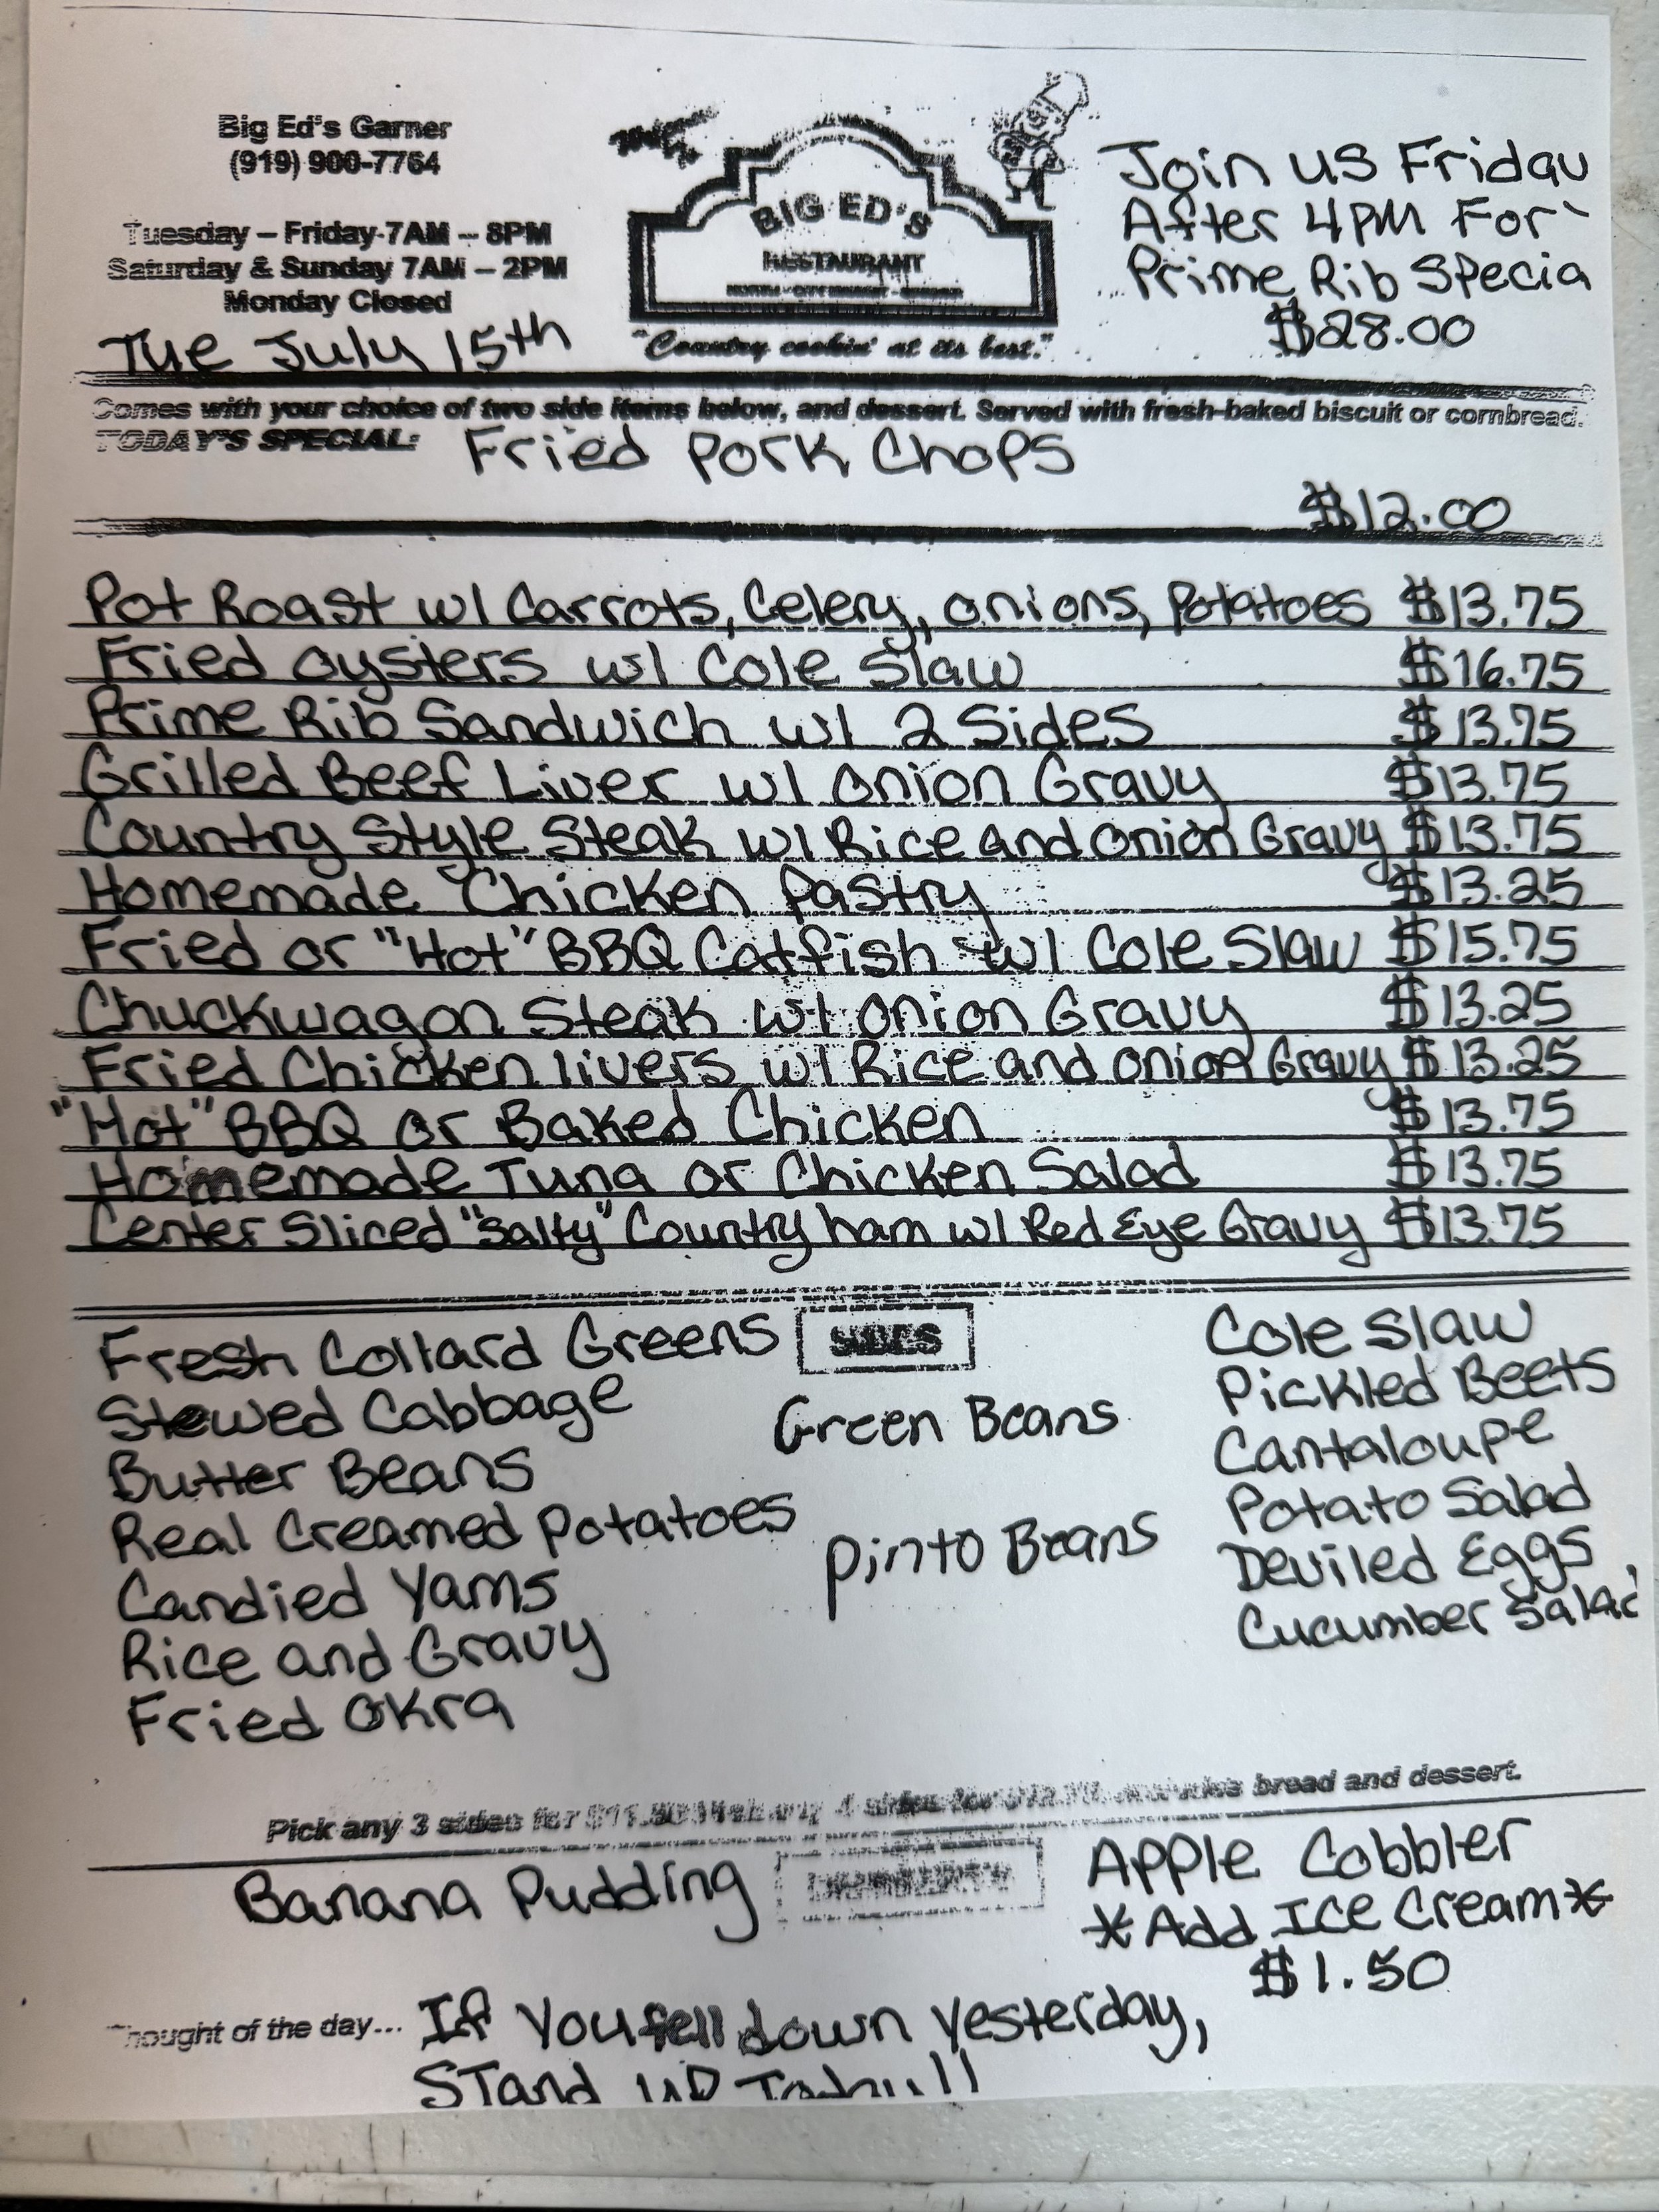 Big Ed's Garner
(919) 900-7764
Tuesday – Friday 7AM – 8PM
Saturday & Sunday 7AM – 2PM
Monday Closed
Tue July 15th
BIG ED'S
RESTAURANT
"Country cookin' at its best."
Join us Friday
After 4PM For
Prime Rib Specia
$28.00
Comes with your choice of two side items below, and dessert. Served with fresh-baked biscuit or cornbread.
TODAY'S SPECIAL: Fried Pork Chops
$12.00
Pot Roast w/ Carrots, Celery, onions, Potatoes $13.75
Fried oysters w/ Cole Slaw $16.75
Prime Rib Sandwich w/ 2 Sides $13.75
Grilled Beef Liver w/ onion Gravy $13.75
Country Style Steak w/ Rice and onion Gravy $13.75
Homemade Chicken Pastry $13.25
Fried or "Hot" BBQ Catfish w/ Cole Slaw $15.75
Chuckwagon Steak w/ onion Gravy $13.25
Fried Chicken livers w/ Rice and onion Gravy $13.25
"Hot" BBQ or Baked Chicken $13.75
Homemade Tuna or Chicken Salad $13.75
Center Sliced "Salty" Country ham w/ Red Eye Gravy $13.75
SIDES
Fresh Collard Greens
Stewed Cabbage
Butter Beans
Real Creamed Potatoes
Candied Yams
Rice and Gravy
Fried Okra
Green Beans
Pinto Beans
Cole Slaw
Pickled Beets
Cantaloupe
Potato Salad
Deviled Eggs
Cucumber Salad
Pick any 3 sides for 4 sides for bread and dessert.
Banana Pudding
Apple Cobbler
*Add Ice Cream*
$1.50
Thought of the day... If you fell down yesterday,
Stand up Today!!